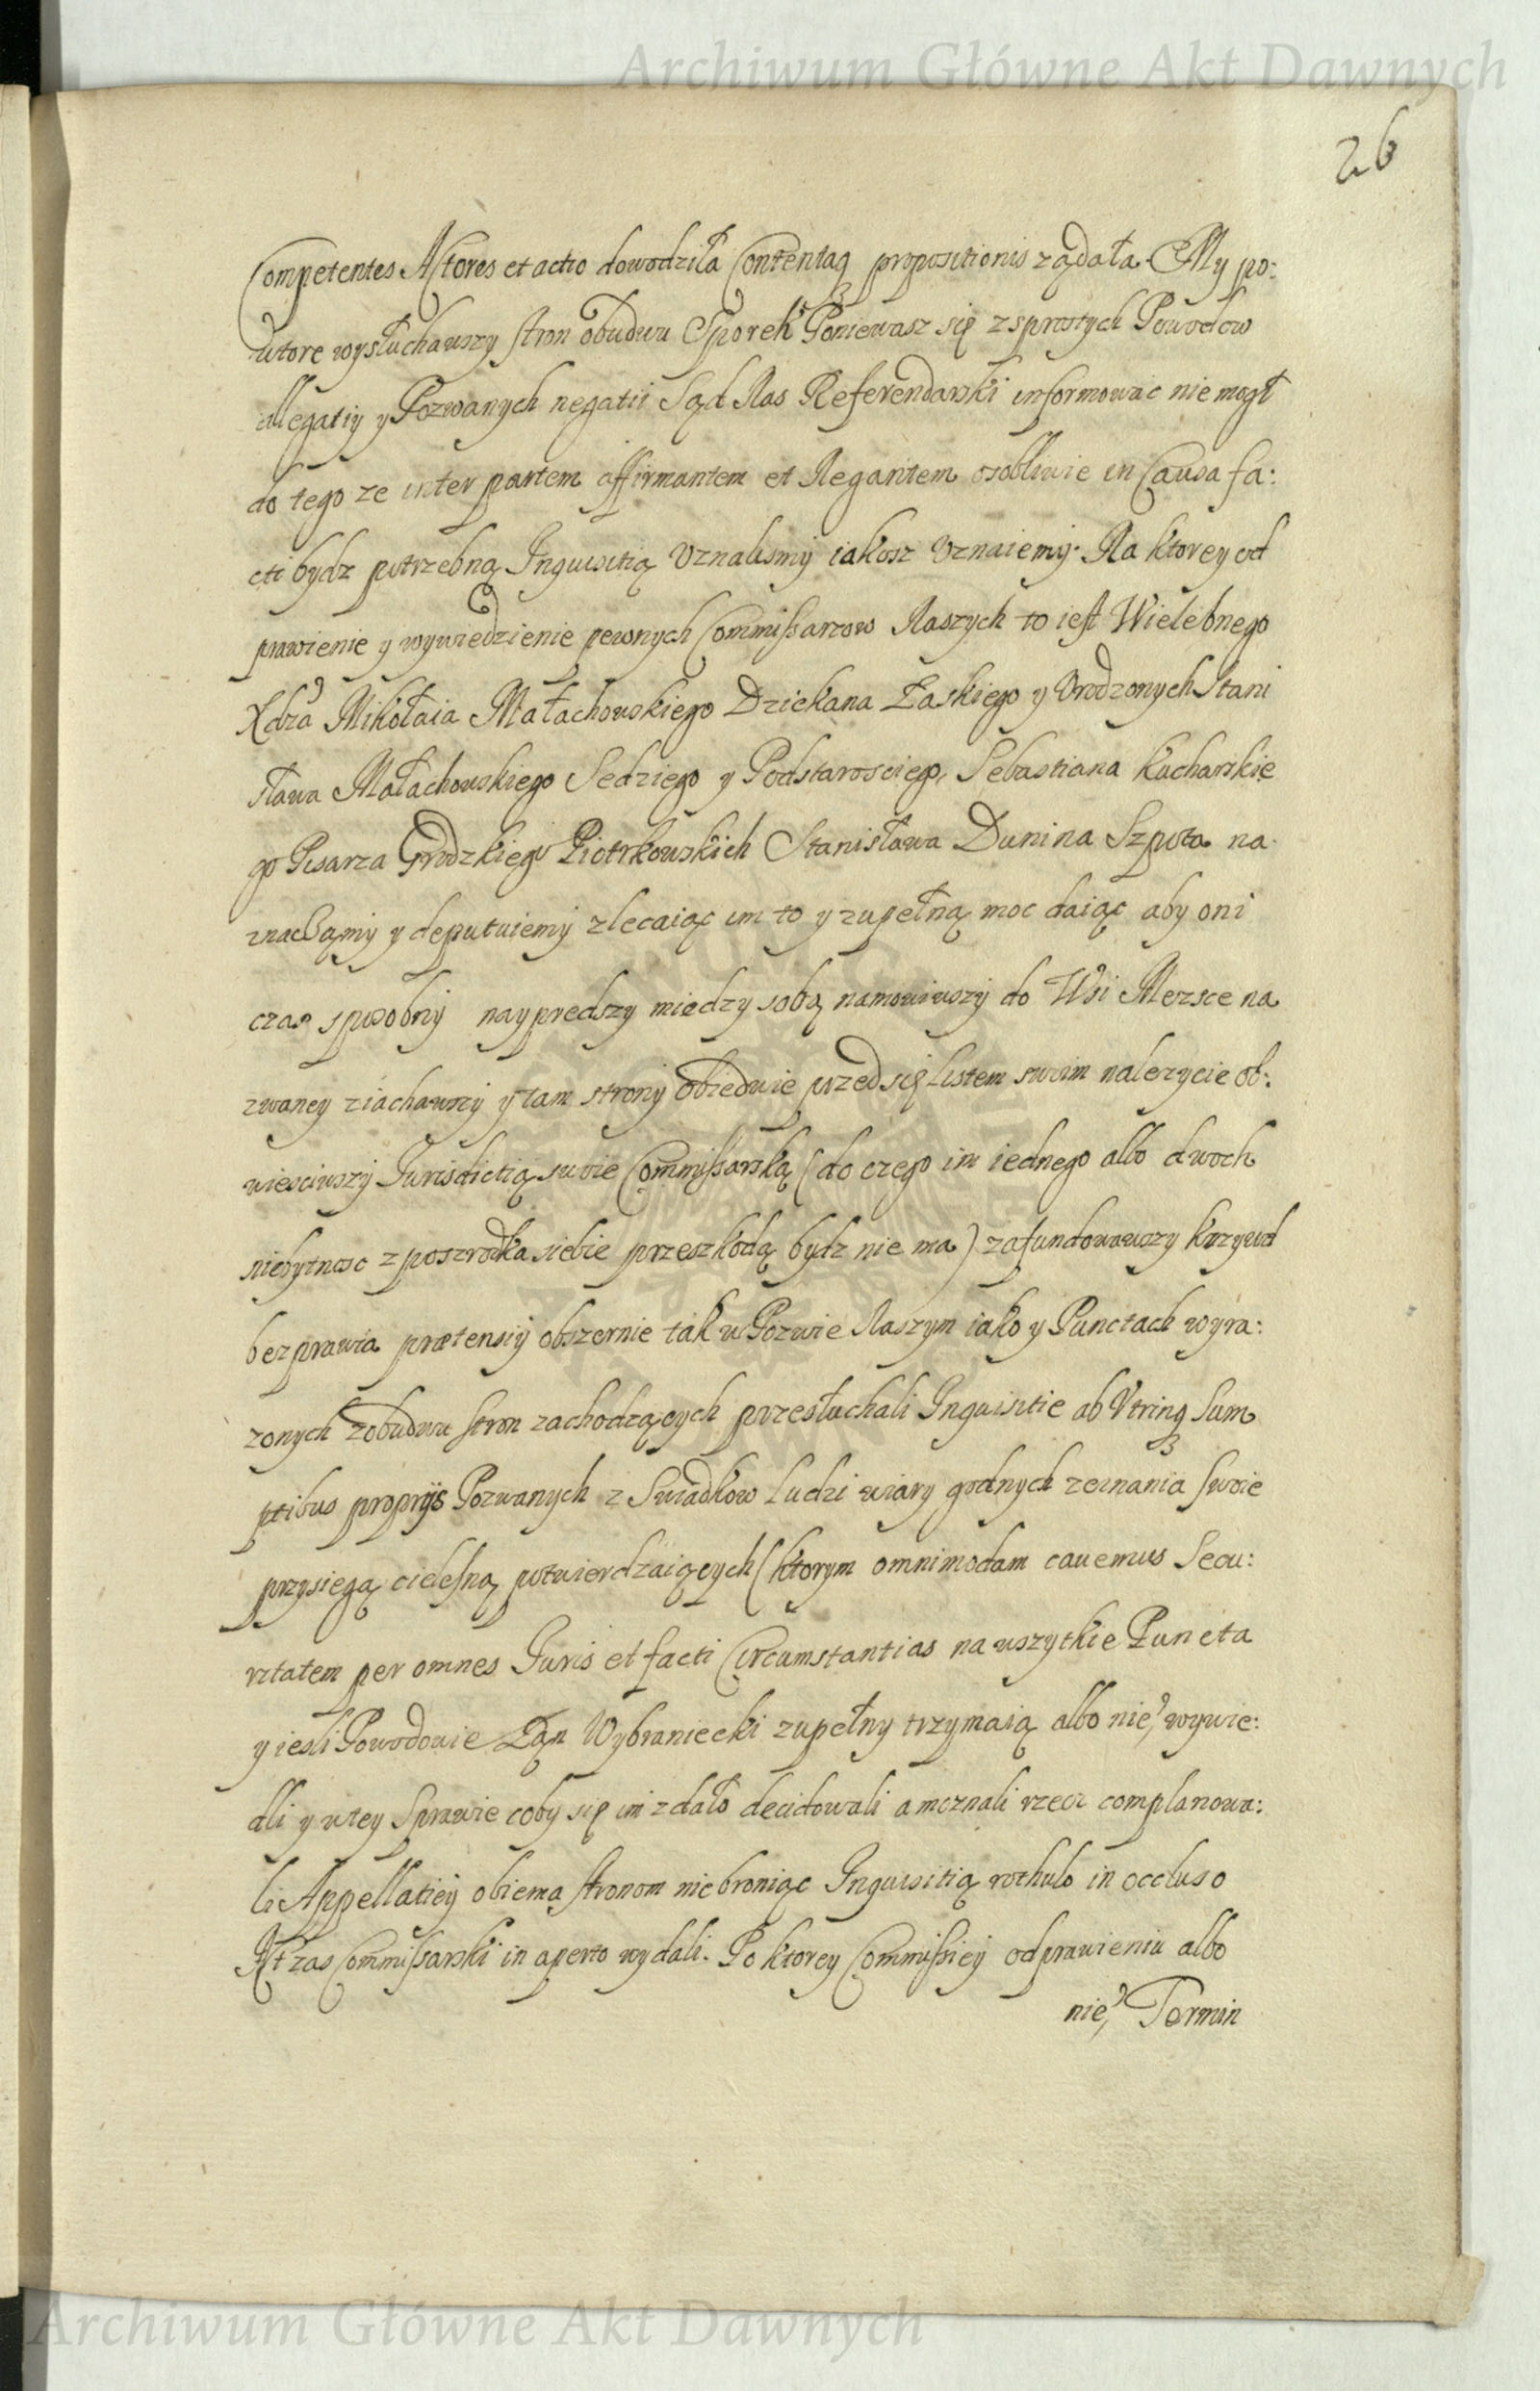 Archiwum Główne Akt Dawnych
26
Competentes Actores et actio dowodziła Contentaq propositionis ządała. My po:
wtore wysłuchawszy stron obudwu Sporek Poniewasz się z sprostych Powodow
allegatiy y Pozwanych negatii Sąd Nas Referendarski informowac nie mogł
do tego ze inter partem affirmantem et Negantem osobliwie in Causa fa:
cti bydz potrzebną Inquisitią Vznalismy iakosz Vznaiemy. Na ktorey od
prawienie y wywiedzienie pewnych Commissarzow Naszych to iest Wielebnego
Xdza Mikołaia Małachowskiego Dziekana Łaskiego y Vrodzonych Stani
sława Małachowskiego Sedziego y Podstarosciego, Sebastiana Kacharskie
go Pisarza Grodzkiego Piotrkowskich Stanisława Dunina Szpota na
znaczamy y deputuiemy zlecaiąc im to y zupełną moc daiąc aby oni
czas sposobny naypredszy miedzy sobą namowiwszy do Wsi Mezsce na
zwaney ziachawszy y tam strony obiedwie przed się Listem swoim nalezycie ob:
wiesciwszy Jurisdictią swoie Commissarską (do czego im iednego albo dwoch
niebytnosc z poszrodka siebie przeszkodą bydz nie ma) zafundowawszy krzywd
bezprawia prætensiy obszernie tak w Pozwie Naszym iako y Punctach wyra:
zonych z obudwu stron zachodzących przesłuchali Inquisitie ab Vtrinq Sum
ptibus proprijs Pozwanych z Swiadkow Ludzi wiary godnych zeznania swoie
przysiegą cielesną potwierdzaiących (ktorym omnimodam cavemus Secu:
ritatem per omnes Juris et facti Circumstantias na wszytkie Puncta
y iesli Powodowie Łąn Wybraniecki zupełny trzymaią albo nie, wywie:
dli y w tey Sprawie coby się im zdało decidowali a mcznali rzecz complanowa:
li Appellatiey obiema stronom nie broniąc Inquisitią rothulo in occluso
Akt zas Commissarski in aperto wydali. Po ktorey Commissiey odprawieniu albo
nie, Termin
Archiwum Główne Akt Dawnych